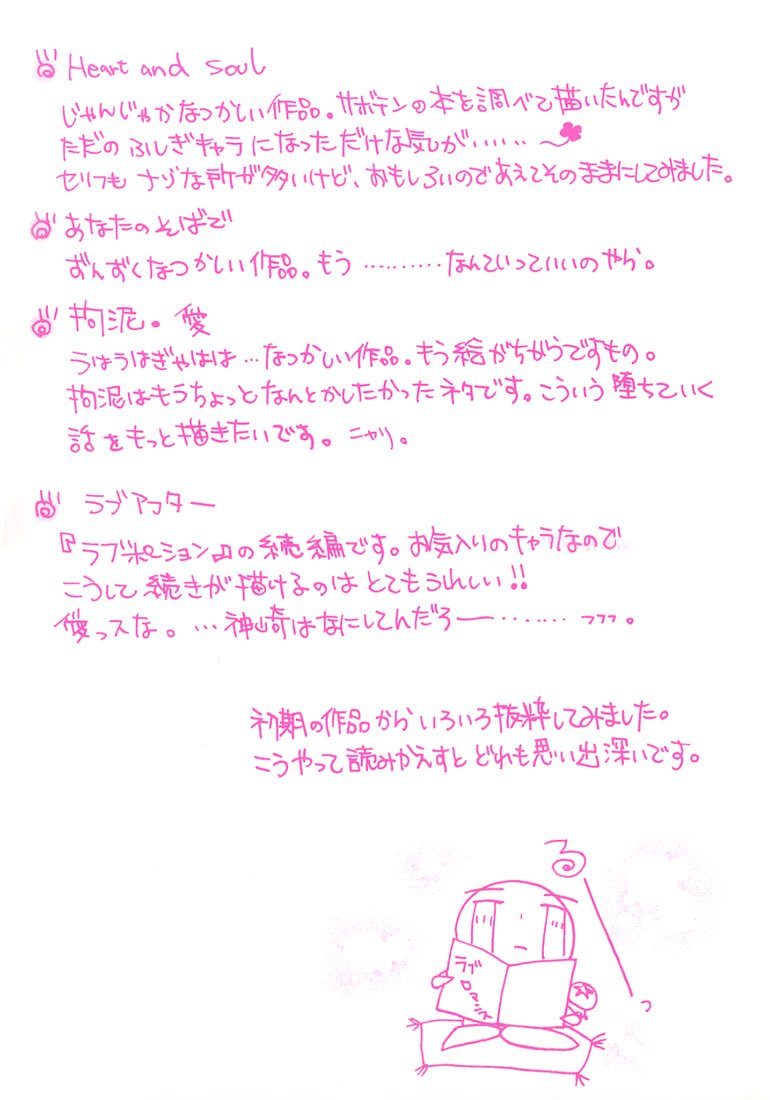 Heart and soul
じゃんじゃかなつかしい作品。サボテンの本を調べて描いたんですが
ただのふしぎキャラになっただけな気が……
セリフもナゾな所が多いけど、おもしろいのであえてそのままにしてみました。
あなたのそばで
ずんずくなつかしい作品。もう………なんていっていいのやら。
拘泥。愛
うはうはぎゃはは…なつかしい作品。もう絵がちがうですもの。
拘泥はもうちょっとなんとかしたかったネタです。こういう堕ちていく
話をもっと描きたいです。ニヤリ。
ラブアフター
『ラブポーション』の続編です。お気入りのキャラなので
こうして続きが描けるのはとてもうれしい!!
愛っスな。…神崎はなにしてんだろー……フフフ。
初期の作品からいろいろ抜粋してみました。
こうやって読みかえすとどれも思い出深いです。
る
っ
ラブ